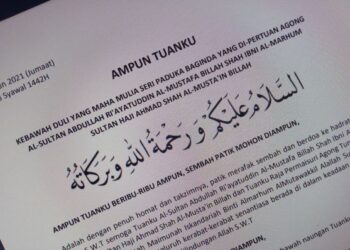 un 2021 (Jumaat)
Syawal 1442H
AMPUN TUANKU
KEBAWAH DULI YANG MAHA MULIA SERI PADUKA BAGINDA YANG DI-PERTUAN AGONG
AL-SULTAN ABDULLAH RI'AYATUDDIN AL-MUSTAFA BILLAH SHAH IBNI AL-MARHUM
SULTAN HAJI AHMAD SHAH AL-MUSTA'IN BILLAH
السَّلَامُ عَلَيْكُمْ وَرَحْمَةُ اللهِ وَبَرَكَاتُهُ
AMPUN TUANKU BERIBU-RIBU AMPUN, SEMBAH PATIK MOHON DIAMPUN,
Adalah dengan penuh hormat dan takzimnya, patik merafak sembah dan berdoa ke hadrat
S.W.T semoga Tuanku Al-Sultan Abdullah Ri'ayatuddin Al-Mustafa Billah Shah ibni
Haji Ahmad Shah Al-Musta'in Billah dan Tuanku Raja Permaisuri Agong Tunku
Maimunah Iskandariah Binti Almarhum AlMutawakkil Alallah
kerabat kerabat sentiasa berada di dalam keadaan
ungan Allah S.W.T